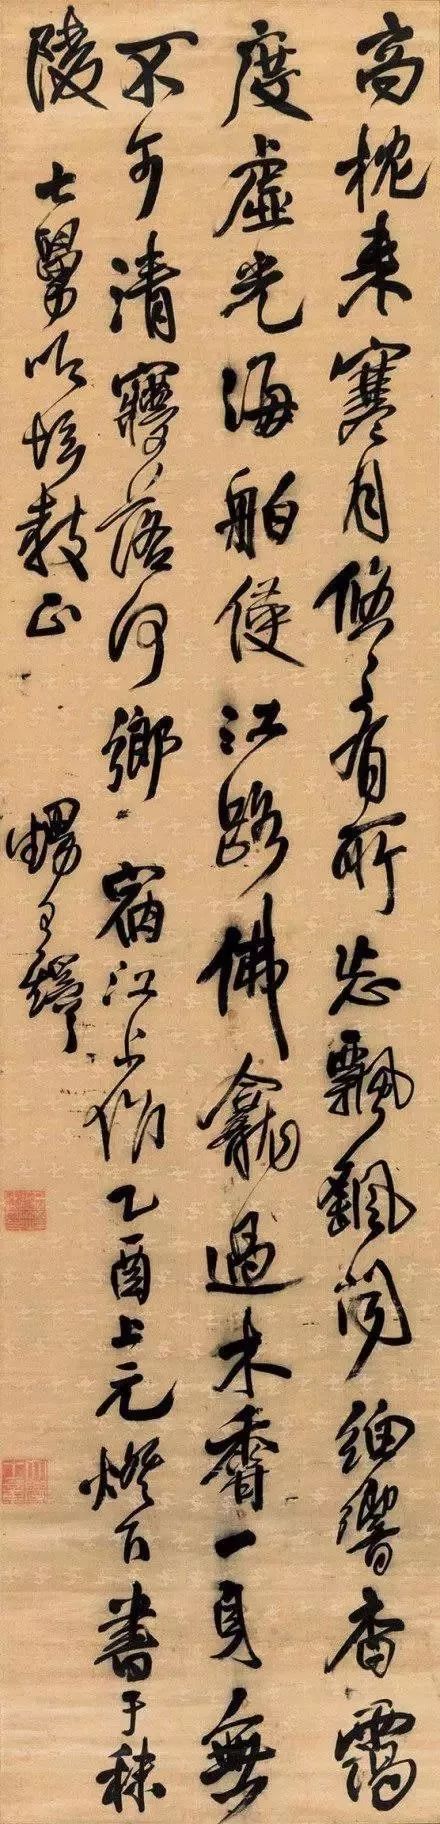 高枕來寒月悠々有所忘飄颻聞細響杳靄
度虛光海舶侵江路佛龕過木香一身無
不可清夢落何鄉 宿江上作 乙酉上元燈下書于秣
陵 七舅教正 甥王鐸